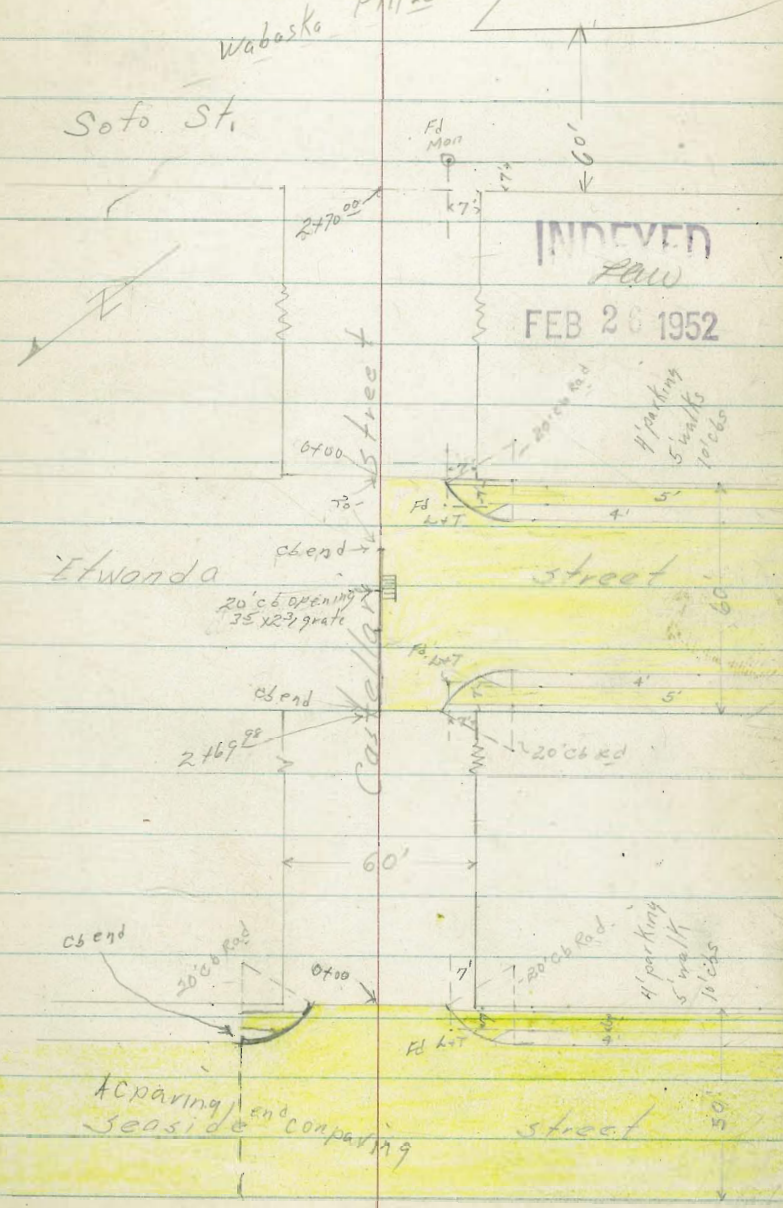 Wabaska
Soto St.
Fd
Mon
60'
7'
7'
2+70 00
INDEXED
FEB 26 1952
N
street
20' cb Rad
4' parking
5' walks
10' cbs
0+00
7'
7'
5'
Fd
L+T
4'
cb end
Etwanda
street
20' cb opening
60'
Castellar
Fd L+T
4'
cb end
7'
5'
7'
2+69 98
20' cb Rd
60'
cb end
20' cb Rad
0+00
7'
20' cb Rad.
4' parking
5' walk
10' cbs
7'
Fd L+T
AC paving end con paving
Seaside
street
50'